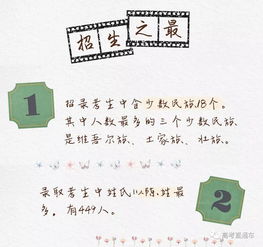 招生之最
1
招录考生中含少数民族18个。
其中人数最多的三个少数民族
是维吾尔族、土家族、壮族。
录取考生中姓氏以陈姓最
多,有449人。
2
高考直通车